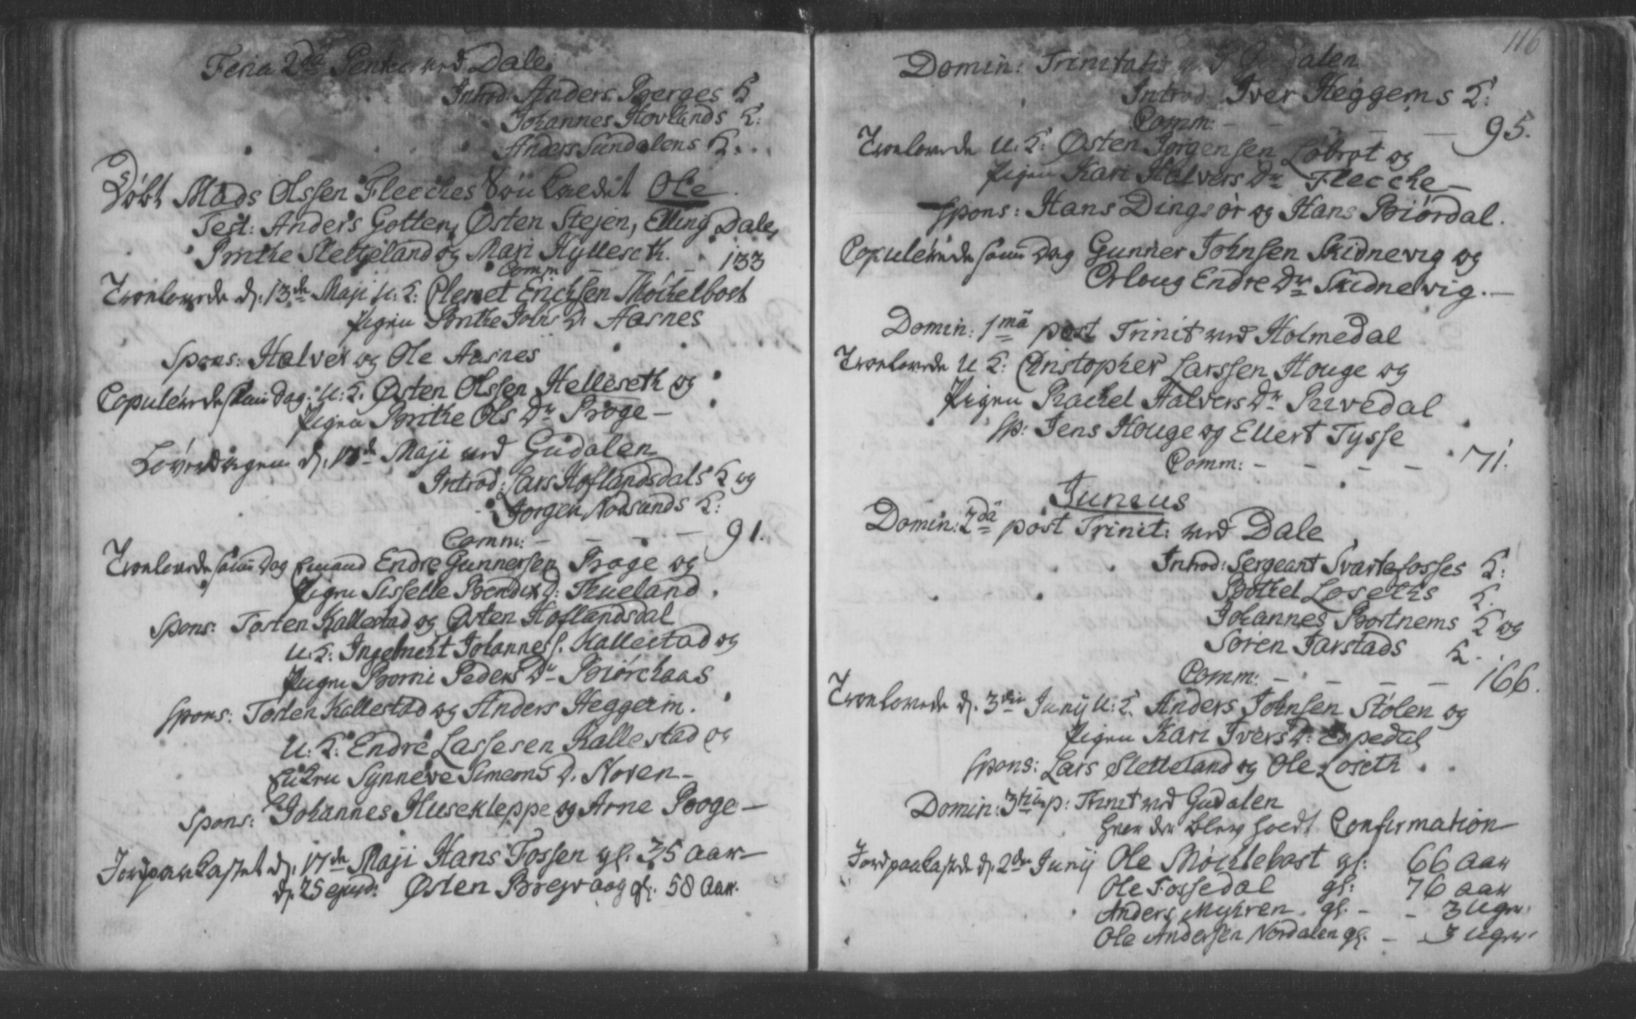 Feria 2da Pentec: ved Dale
Introd: Anders Berges K
Johannes Hovlands K:
Anders Sundalens K
Døbt Mads Olssen Flecches Søn kaldet Ole
Test: Anders Gotten, Østen Stejen, Elling Dale,
Brithe Sletteland og Mari Hylleseth.
Comm 133
Troelovede d: 13de Maji U: K: Clemet Erichsen Møckelbost
Pigen Brithe Joens D: Aasnes
Spons: Halver og Ole Aasnes
Copulerede samme Dag: U: K: Østen Olssen Helleseth og
Pigen Brithe Ols Dr Broge –
Løverdagen d: 17de Maji ved Gudalen
Introd: Lars Hoflandsdals K og
Jørgen Nodsunds K:
Comm: – – – 91.
Troelovede samme Dag Enemand Endre Gunnersen Broge og
Pigen Sisselle Bendix D: Flueland.
Spons: Tosten Kallestad og Østen Hoflandsdal
U: K: Ingebrict Johannes S. Kallestad og
Pigen Borni Peders Dr Biørchaas
Spons: Tosten Kallestad og Anders Heggeim.
U: K: Endre Lassesen Kallestad og
Enken Synneve Simeons D. Noven –
Spons: Johannes Husekleppe og Arne Booge –
Jordpaakastet d: 17de Maji Hans Fossen gl: 75 aar –
d: 25 ejusd: Østen Bregvaag gl: 58 Aar.
116
Domin: Trinitatis Gudalen
Introd: Iver Heggems K:
Comm: – – – 95.
Troelovede U: K: Østen Jørgensen Løbrot og
Pigen Kari Halvers Dr Flecche –
Spons: Hans Dingsør og Hans Biørdal.
Copulerede samme Dag Gunner Johnsen Skidnevig og
Orloug Endre Dr Skidnevig. –
Domin: 1ma post Trinit ved Holmedal
Troelovede U K: Christopher Larssen Houge og
Pigen Rachel Halvers Dr Rivedal
Sp: Jens Houge og Ellert Tysse
Comm: – – – – 71.
Junius
Domin: 2da post Trinit: ved Dale
Introd: Sergeant Svartefosses K:
Bottel Loseths K.
Johannes Bortnems K og
Søren Jarstads K.
Comm: – – – – 166.
Troelovede d. 3die Junij U: K. Anders Johnsen Stølen og
Pigen Kari Ivers D: Espedal
Spons: Lars Sletteland og Ole Loseth.
Domin: 3tia p: Trinit ved Gudalen
hvor der blev holdt Confirmation
Jordpaakastede d: 2den Junij Ole Møcklebost gl: 66 Aar
Ole Fossedal gl: 76 aar
Anders Myhren gl. – – 3 Uger.
Ole Andersen Nordalen gl. – 3 Uger.